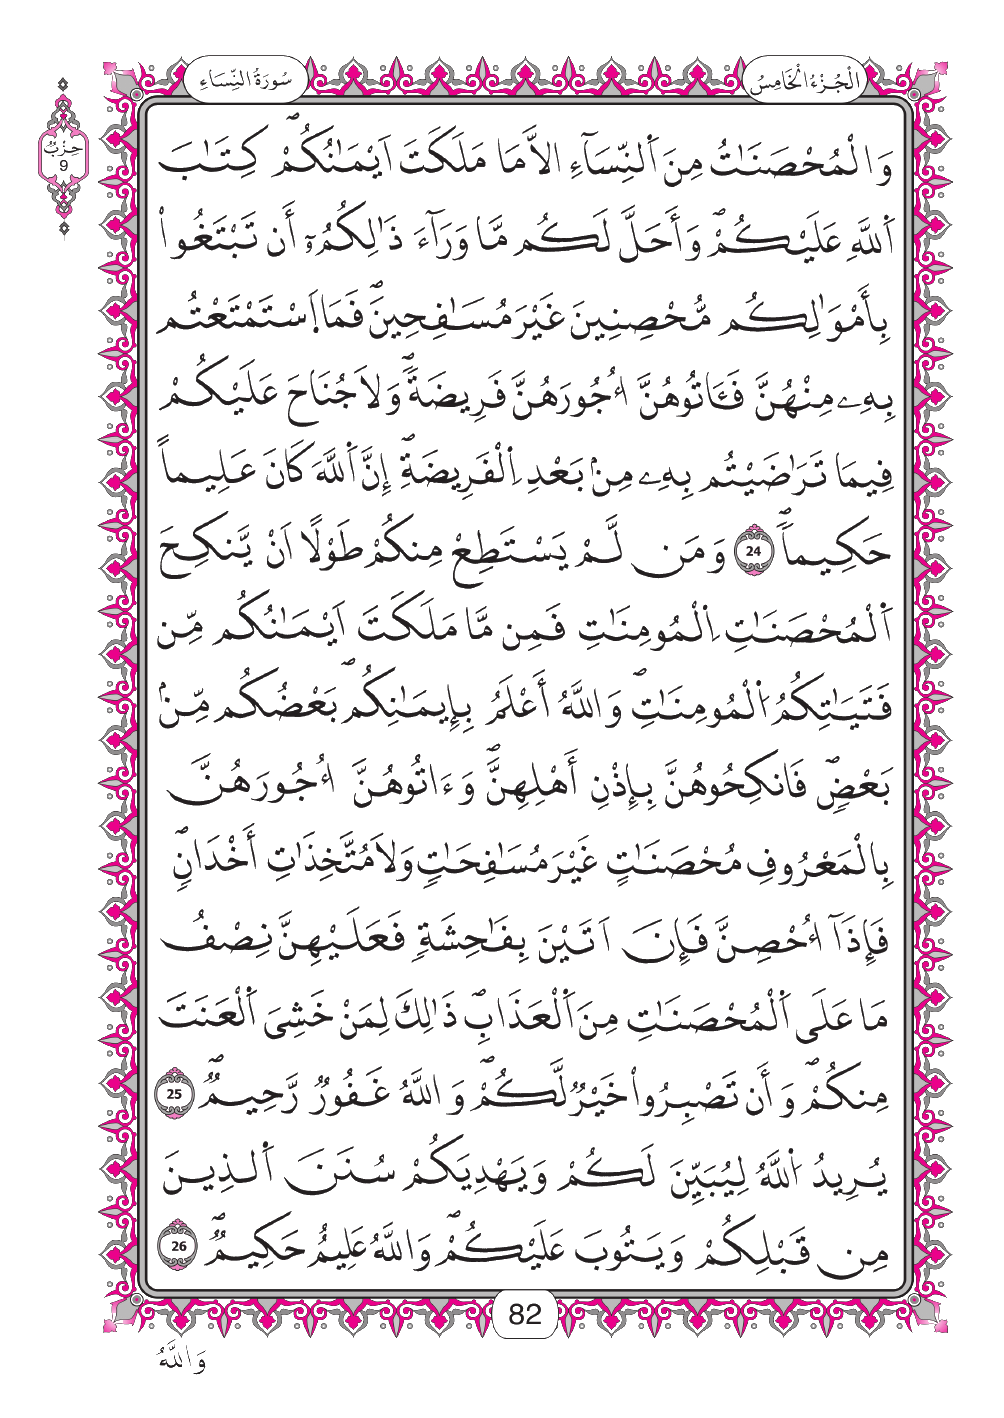 الْجُزْءُ الْخَامِسُ
سُورَةُ النِّسَاءِ
حِزْبٌ
9
وَالْمُحْصَنَٰتُ مِنَ اَ۬لنِّسَآءِ الَّا مَا مَلَكَتَ اَيْمَٰنُكُمْۖ كِتَٰبَ
اَ۬للَّهِ عَلَيْكُمْۖ وَأَحَلَّ لَكُم مَّا وَرَآءَ ذَٰلِكُمُۥٓ أَن تَبْتَغُواْ
بِأَمْوَٰلِكُم مُّحْصِنِينَ غَيْرَ مُسَٰفِحِينَۖ فَمَا اَ۪سْتَمْتَعْتُم
بِهِۦ مِنْهُنَّ فَـَٔاتُوهُنَّ أُجُورَهُنَّ فَرِيضَةٗۖ وَلَا جُنَاحَ عَلَيْكُمْ
فِيمَا تَرَٰضَيْتُم بِهِۦ مِنۢ بَعْدِ اِ۬لْفَرِيضَةِۖ إِنَّ اَ۬للَّهَ كَانَ عَلِيماً
حَكِيماٗۖ 24 وَمَن لَّمْ يَسْتَطِعْ مِنكُمْ طَوْلًا اَنْ يَّنكِحَ
اَ۬لْمُحْصَنَٰتِ اِ۬لْمُومِنَٰتِ فَمِن مَّا مَلَكَتَ اَيْمَٰنُكُم مِّن
فَتَيَٰتِكُمُ اُ۬لْمُومِنَٰتِۖ وَاللَّهُ أَعْلَمُ بِإِيمَٰنِكُمۖ بَعْضُكُم مِّنۢ
بَعْضٖۖ فَانكِحُوهُنَّ بِإِذْنِ أَهْلِهِنَّۖ وَءَاتُوهُنَّ أُجُورَهُنَّ
بِالْمَعْرُوفِ مُحْصَنَٰتٍ غَيْرَ مُسَٰفِحَٰتٖ وَلَا مُتَّخِذَٰتِ أَخْدَانٖۖ
فَإِذَآ أُحْصِنَّ فَإِنَ اَتَيْنَ بِفَٰحِشَةٖ فَعَلَيْهِنَّ نِصْفُ
مَا عَلَى اَ۬لْمُحْصَنَٰتِ مِنَ اَ۬لْعَذَابِۖ ذَٰلِكَ لِمَنْ خَشِيَ اَ۬لْعَنَتَ
مِنكُمْۖ وَأَن تَصْبِرُواْ خَيْرٞ لَّكُمْۖ وَاللَّهُ غَفُورٞ رَّحِيمٞۖ 25
يُرِيدُ اُ۬للَّهُ لِيُبَيِّنَ لَكُمْ وَيَهْدِيَكُمْ سُنَنَ اَ۬لذِينَ
مِن قَبْلِكُمْ وَيَتُوبَ عَلَيْكُمْۖ وَاللَّهُ عَلِيمٌ حَكِيمٞۖ 26
82
وَاللَّهُ